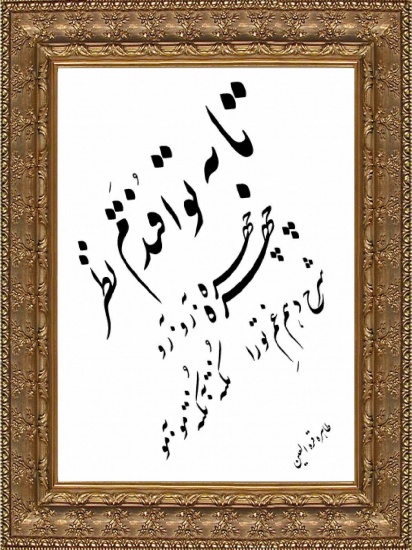 تا به تو افتدم نظر
چهره به چهره رو به رو
شرح دهم غم تو را
نکته به نکته مو به مو
طاهره قرة العین